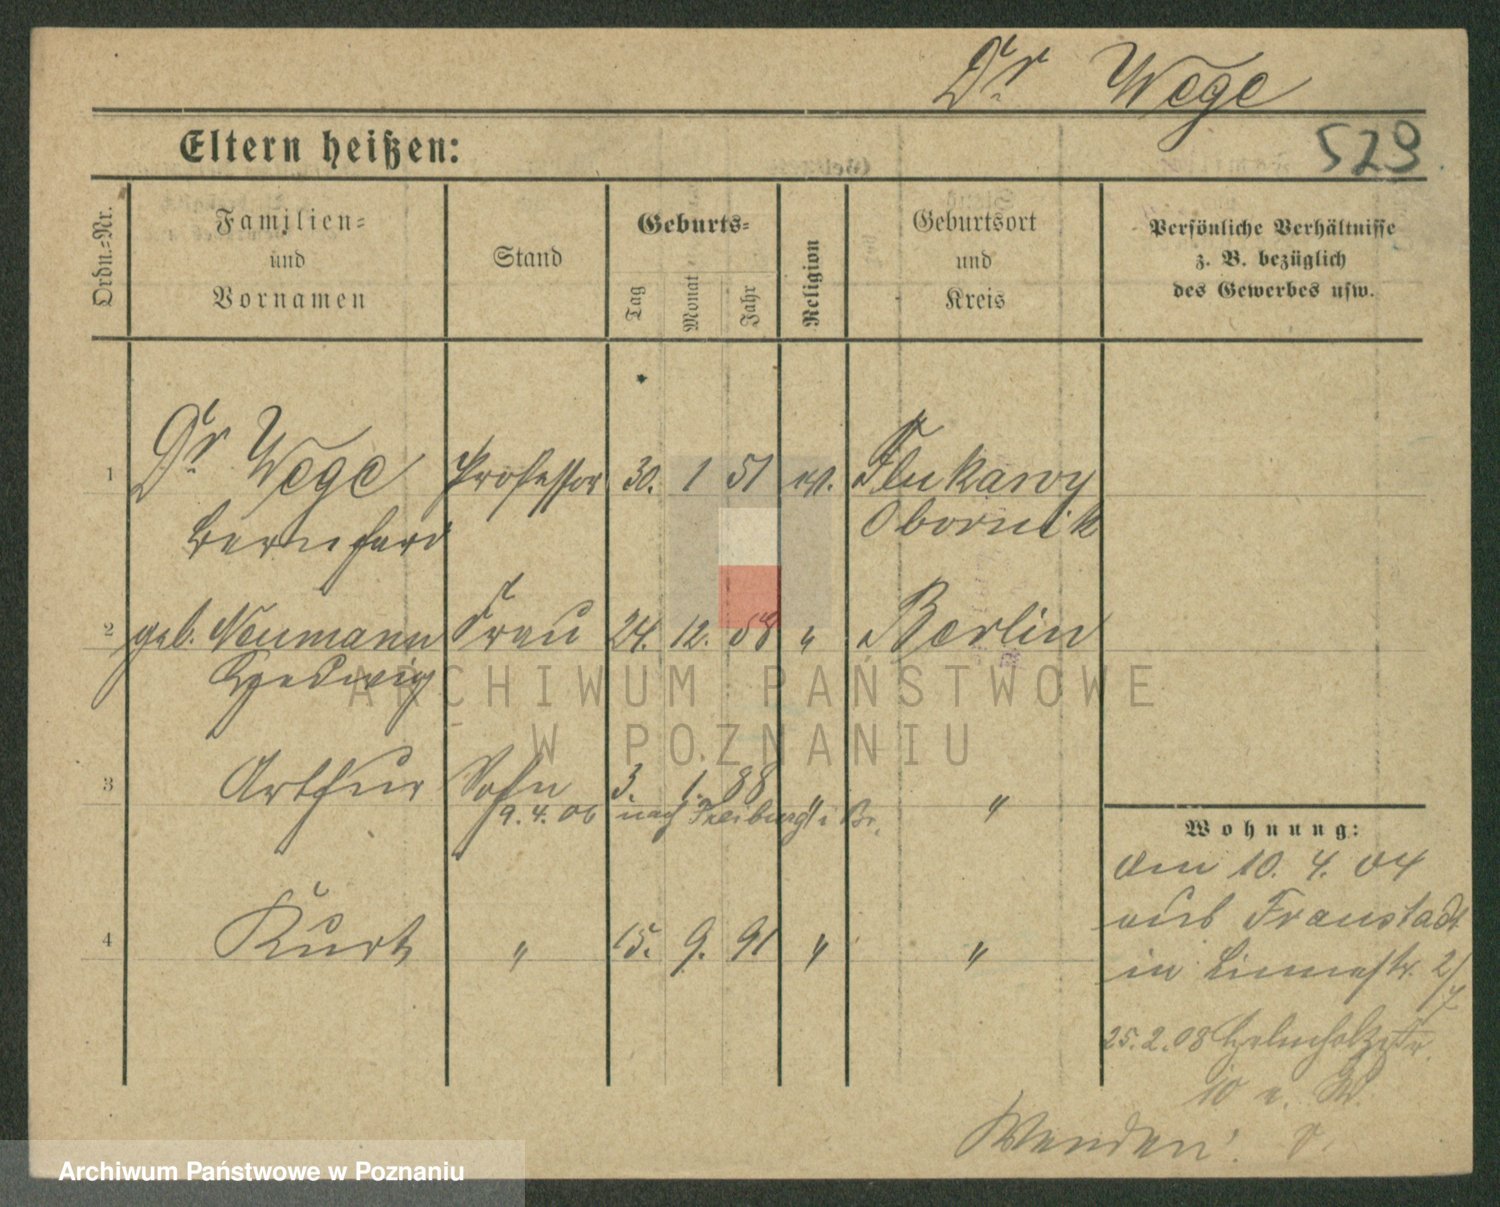 Dr Wege
Eltern heißen:
529
Ordn.=Nr.
Familien=
und
Vornamen
Stand
Geburts=
Tag
Monat
Jahr
Religion
Geburtsort
und
Kreis
Persönliche Verhältnisse
z. B. bezüglich
des Gewerbes usw.
1 Dr Wege Professor 30. 1 51 ev. Flukawy
Bernhard Obornik
2 geb. Neumann Frau 24. 12. 58 " Berlin
Hedwig
3 Arthur Sohn 3. 1. 88 " "
9. 4. 06 nach Freiburg i Br.
4 Kurt " 15. 9. 91 " "
Wohnung:
am 10. 4. 04
aus Fraustadt
in 2/
7
25. 2. 08
10
Wenden!
ARCHIWUM PAŃSTWOWE
W POZNANIU
Archiwum Państwowe w Poznaniu